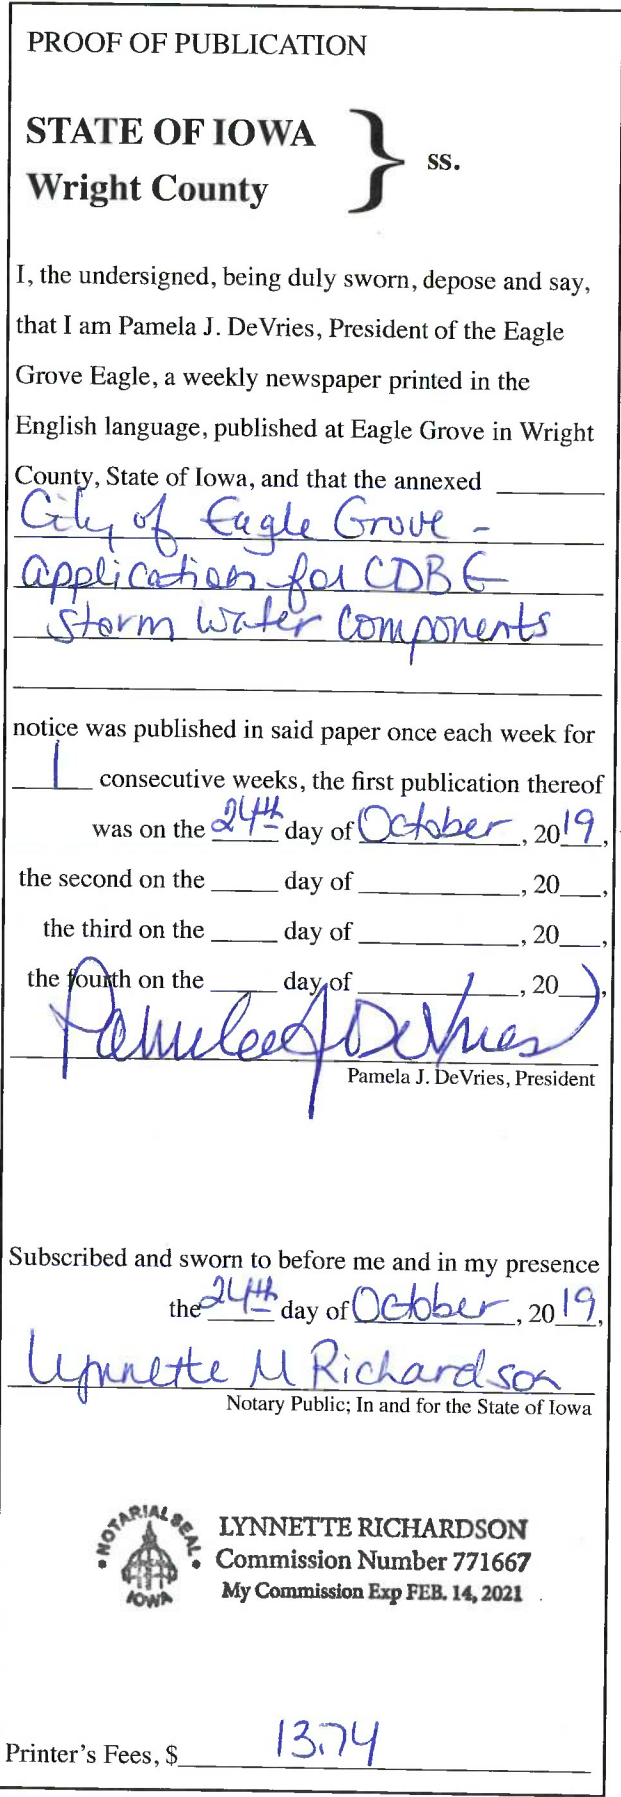 PROOF OF PUBLICATION
STATE OF IOWA
Wright County
} ss.
I, the undersigned, being duly sworn, depose and say,
that I am Pamela J. DeVries, President of the Eagle
Grove Eagle, a weekly newspaper printed in the
English language, published at Eagle Grove in Wright
County, State of Iowa, and that the annexed
City of Eagle Grove -
application for CDBG
storm water components
notice was published in said paper once each week for
1 consecutive weeks, the first publication thereof
was on the 24th day of October, 2019,
the second on the ____ day of ________, 20__,
the third on the ____ day of ________, 20__,
the fourth on the ____ day of ________, 20__,
Pamela J DeVries
Pamela J. DeVries, President
Subscribed and sworn to before me and in my presence
the 24th day of October, 2019,
Lynnette M Richardson
Notary Public; In and for the State of Iowa
NOTARIAL SEAL
IOWA
LYNNETTE RICHARDSON
Commission Number 771667
My Commission Exp FEB. 14, 2021
Printer's Fees, $ 13.74